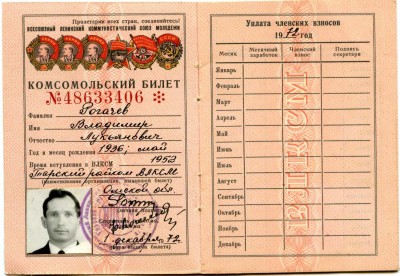 Пролетарии всех стран, соединяйтесь!
ВСЕСОЮЗНЫЙ ЛЕНИНСКИЙ КОММУНИСТИЧЕСКИЙ СОЮЗ МОЛОДЕЖИ
КОМСОМОЛЬСКИЙ БИЛЕТ
№48633406
Фамилия Рогачев
Имя Владимир
Отчество Лукьянович
Год и месяц рождения 1936, май
Время вступления в ВЛКСМ 1953
Тарский райком ВЛКСМ
(наименование организации, выдавшей билет)
Омской обл.
1 декабря 72
Уплата членских взносов
1972 год
Месяц
Месячный заработок
Членский взнос
Подпись секретаря
Январь
Февраль
Март
Апрель
Май
Июнь
Июль
Август
Сентябрь
Октябрь
Ноябрь
Декабрь
ВЛКСМ